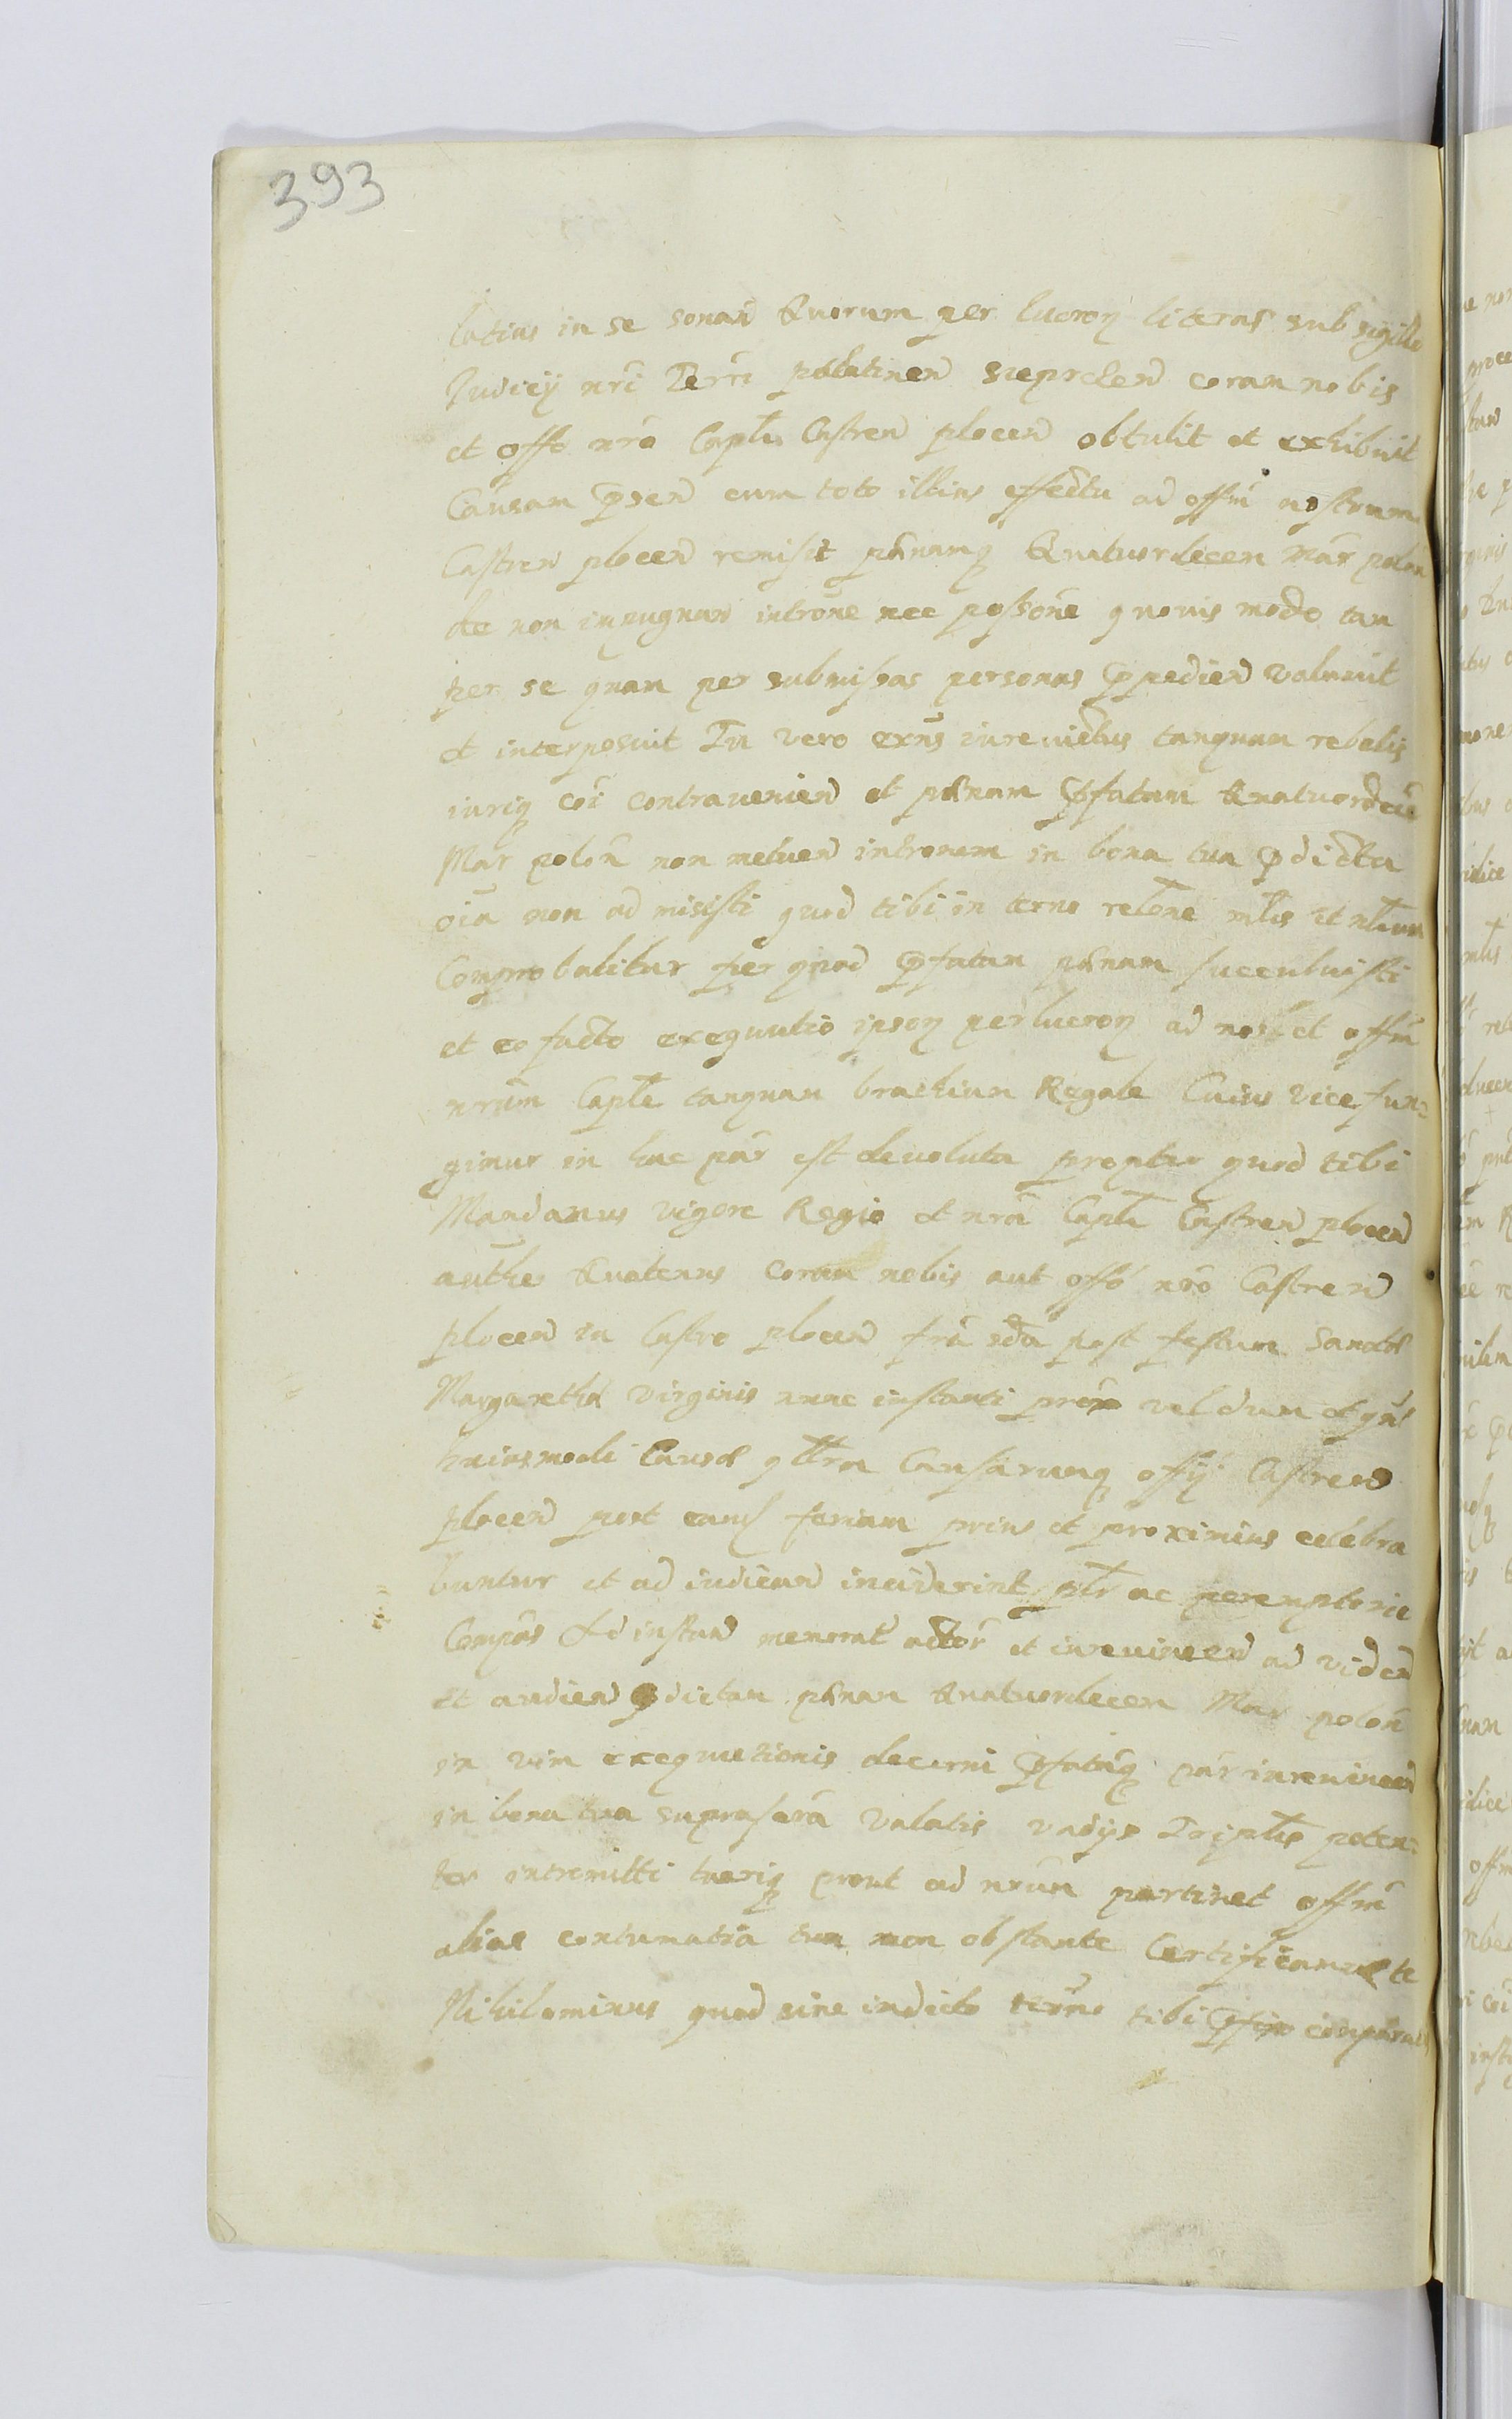 393
latius in se sonań Quorum per lucroꝝ literas sub sigillo
Judicÿ nri Terri palatineń suepreleń coram nobis
et offo nro Capłi Castreń ploceń obtulit et exhibuit
Causam p̄seń cum toto illius effectu ad offm nostrum
Castreń ploceń remisit pęnamq̨ Quatuordecem Mar poloń
de non impugnań introne nec possone quouis modo tam
per se quam per submissas personas p̄pedień valauit
et interposuit Tu vero exn̄s iureuictus tanquam rebelis
iuriq̨ coi contravenień et pęnam p̄fatam Quatuordecim
Mar poloń non metueń intronem in bona tua p̄dicta
oia non admisisti quod tibi in terno relone mlis et nlium
Comprobabitur per quod p̄fatam pęnam succubuisti
et eo facto exequutio ipsoꝝ per lucroꝝ ad nos et offm
nrum Caple tanquam brachium Regale Cuius vice fun=
gimur in hac par est deuoluta propter quod tibi
Mandamus vigore Regia et nra Capli Castreń ploceń
authe Quatenus coram nobis aut offo nro Castreń
ploceń in Castro ploceń fria sda post festum Sanctę
Margarethę virginis nunc instanti prox vel dum et qn̄
huiusmodi Causę qllra Causarumq̨ offÿ Castreń
ploceń post eand feriam prius et proximius celebra
buntur et ad iudicań inciderint plr ac peremptorie
Compas Ad instań memorat actor et iureuinceń ad videń
Et audień p̄dictam pęnam Quatuordecem Mar poloń
in vim exequutionis decerni p̄fatāq̨ par iureuinceń
in bona tua suprascra valatis vadÿs Triplis poten=
ter intromitti tueriq̨ prout ad nrum pertinet offm
alias contumatia tua non obstante Certificamus te
Nihilominus quod siue indicto termo tibi p̄fixo comparueris